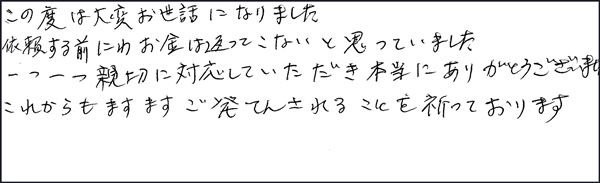 この度は大変お世話になりました
依頼する前にわお金は返ってこないと思っていました
一つ一つ親切に対応していただき本当にありがとうございました
これからもますますご発てんされることを祈っております